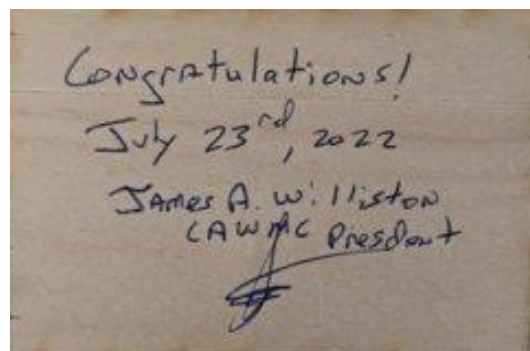 Congratulations!
July 23rd, 2022
James A. Williston
CAWMC President